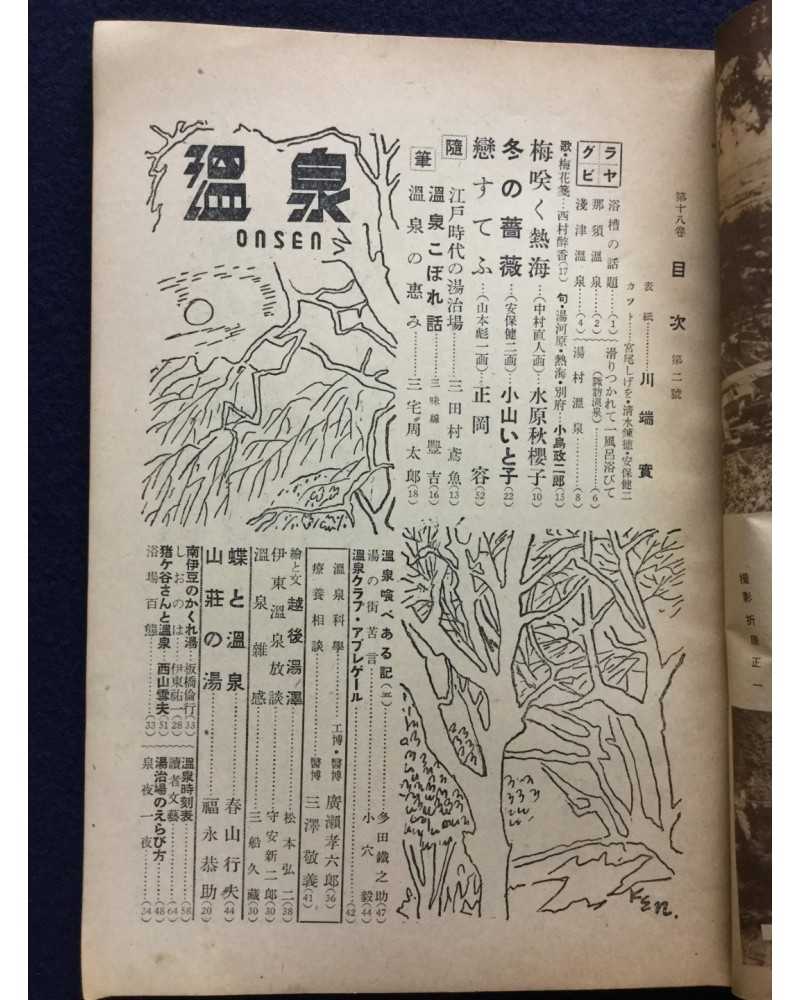 第十八巻 目次 第二號
表紙………川端實
カット…宮尾しげを・清水崑・安保健二
グラビヤ
浴槽の話題…(1)
滑りつかれて一風呂浴びて(諏訪温泉)…(6)
那須温泉…(2)
淺津温泉…(4)
湯村温泉…(8)
歌・梅花箋…西村醉香(17)
句・湯河原・熱海・別府…小島政二郎(15)
梅咲く熱海…(中村直人画)…水原秋櫻子(10)
冬の薔薇…(安保健二画)…小山いと子(22)
戀すてふ…(山本彪一画)…正岡容(52)
隨筆
江戸時代の湯治場…三田村鳶魚(13)
温泉こぼれ話…三味線豐吉(16)
温泉の惠み…三宅周太郎(18)
溫泉
ONSEN
温泉喰べある記(五)…多田鐵之助(47)
湯の街苦言…小穴毅(44)
温泉クラブ・アプレゲール…(42)
温泉科學…工博・醫博 廣瀬孝六郎(36)
療養相談…醫博 三澤敬義(41)
繪と文 越後湯澤…松本弘二(38)
伊東温泉放談…守安新二郎(30)
温泉雜感…三船久藏(30)
蝶と温泉…春山行夫(44)
山莊の湯…福永恭助(20)
南伊豆のかくれ湯…板橋倫行(33)
しおのは…伊東祐一(28)
猪ケ谷さんと温泉…西山雪夫(51)
浴場百態…(33)
温泉時刻表…(58)
讀者文藝…(64)
湯治場のえらび方…(48)
泉夜一夜…(34)
KEN.
撮影 折原正一